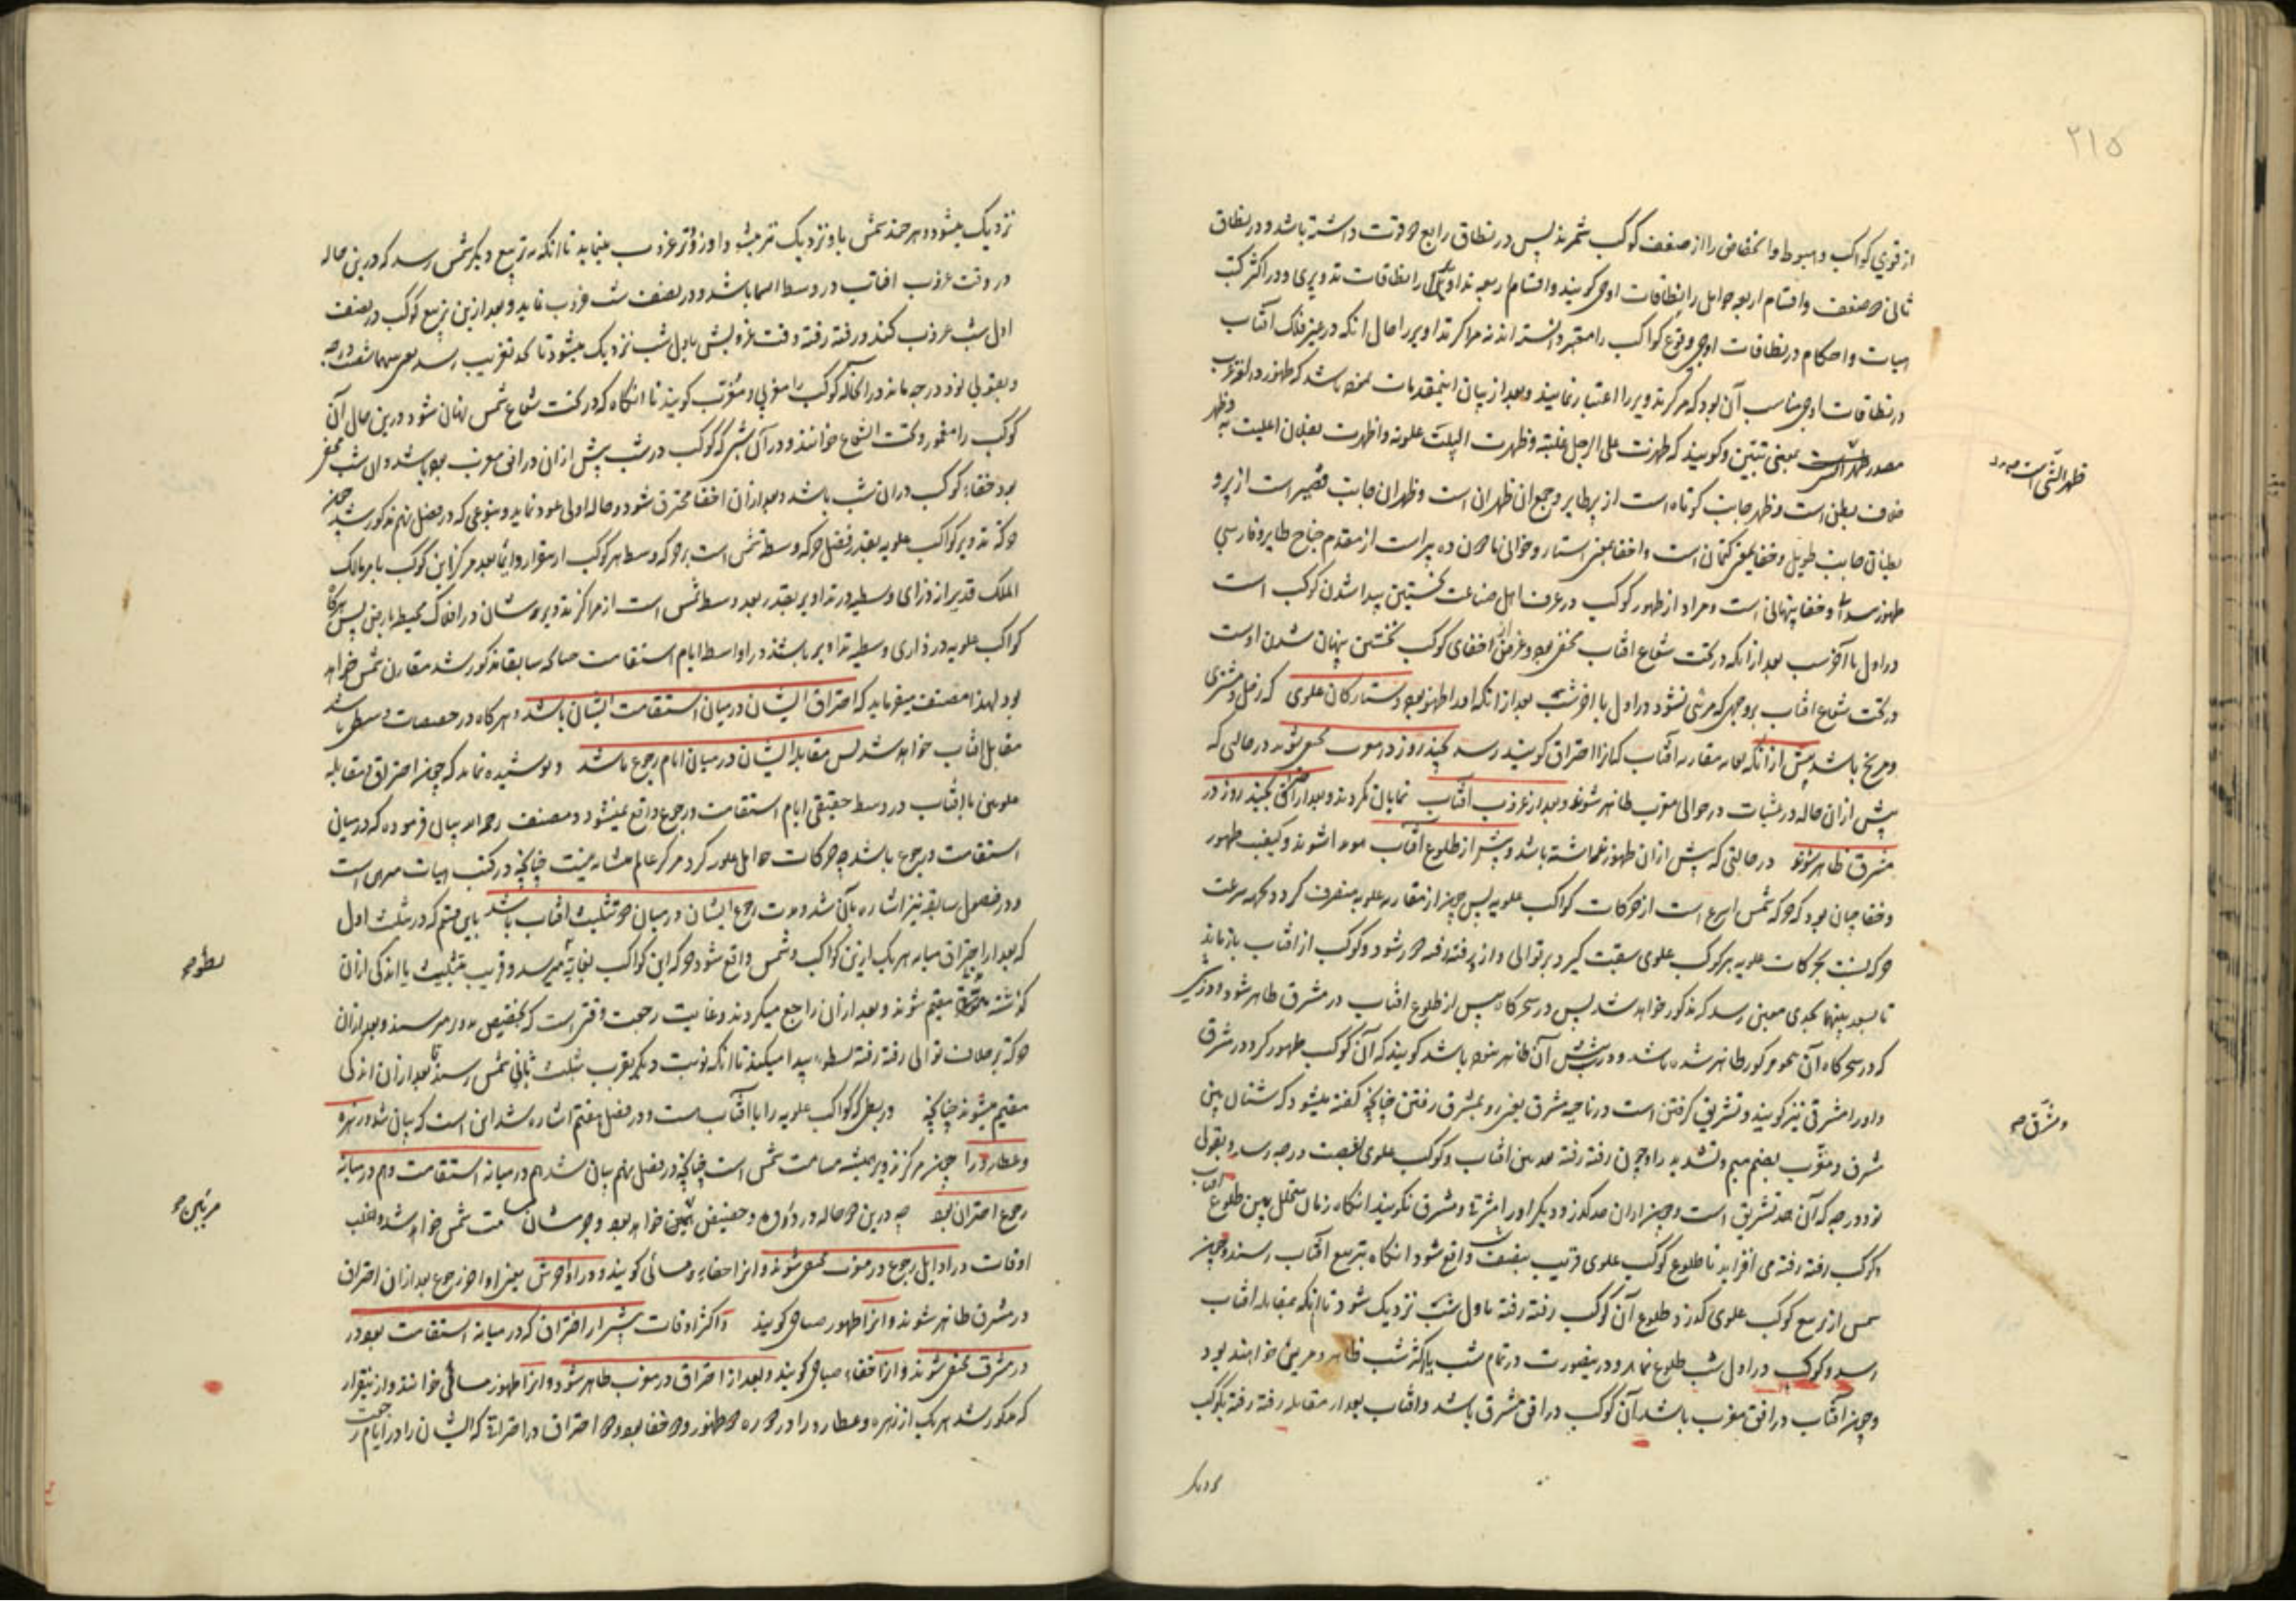 ٢١٥
از قوی کواکب و هبوط و انخفاض را از ضعف کوکب شمرند پس در نطاق رابع دو قوت داشته باشد و در نطاق
ثانی دو ضعف و اقسام اربعه حوامل را نطاقات اوجی گویند و اقسام اربعه تداویر را نطاقات تدویری و در اکثر کتب
هیات و احکام در نطاقات اوجی وقوع کواکب را معتبر دانسته اند نه مراکز تداویر را حال آنکه در غیر فلک آفتاب
در نطاقات اوجی مناسب آن بود که مرکز تدویر را اعتبار نمایند و بعد از بیان این مقدمات باشد که ظهور در لغت عرب
مصدر بمعنی تبین و گویند که ظهرت علی الرجل غلبته و ظهرت البیت علوته و اظهرت بفلان اعلیت به و ظهر
خلاف بطن است و ظهر جانب کوتاه است از پر طایر و جمع آن ظهران است و ظهران جانب قصیر است از پر و
بطنان جانب طویل و خفا بمعنی کتمان است و اختفا بمعنی استتار و خوافی ده پر است از مقدم جناح طایر و فارسی
ظهور پیدائی و خفا پنهانی است و مراد از ظهور کوکب در عرف اهل صناعت نخستین پیدا شدن کوکب است
در اول یا آخر شب بعد از آنکه در تحت شعاع آفتاب مخفی بود و غرض از اختفای کوکب نخستین پنهان شدن اوست
در تحت شعاع آفتاب بر وجهی که مرئی نشود در اول یا آخر شب بعد از آنکه او را ظهور بود و ستارگان علوی که زحل و مشتری
و مریخ باشد پیش از آنکه مقارنه آفتاب که آنرا احتراق گویند رسد بچند روز در مغرب مخفی شوند در حالتی که
پیش از آن حاله در شبات در حوالی مغرب ظاهر شوند و بعد از غروب آفتاب نمایان گردند و بعد از احتراق بچند روز در
مشرق ظاهر شوند در حالتی که پیش از آن ظهور نداشته باشد و پیش از طلوع آفتاب هویدا شوند و کیفیت ظهور
و خفا چنان بود که حرکت شمس اسرع است از حرکات کواکب علویه پس چون از مقارنه علویه منصرف گردد بجهت سرعت
حرکت نسبت بحرکات علویه بر کوکب علوی سبقت گیرد بر توالی و از او رفته رفته دور شود و کوکب از آفتاب باز ماند
تا بعد بینهما بحدی معین رسد که مذکور خواهد شد پس در سحرگاه پیش از طلوع آفتاب در مشرق ظاهر شود و در روزی
که در سحرگاه آن مذکور ظاهر شده باشد و در پیش آن ظاهر نبوده باشد گویند که آن کوکب ظهور کرد در مشرق
و او را مشرقی نیز گویند و تشریق گرفتن است در ناحیه مشرق یعنی رو بمشرق رفتن چنانچه گفته میشود که شتان بین
مشرق و مغرب بضم میم و تشدید را و چون رفته رفته بعد بین آفتاب و کوکب علوی بشصت درجه رسد و بقول
نود درجه که آن حد تشریق است و چون از آن حد گذرد دیگر او را مشرق نگویند آنگاه زمان متخلل بین طلوع آفتاب
و کوکب رفته رفته می افزاید تا طلوع کوکب علوی قریب بنصف شب واقع شود آنگاه بتربیع آفتاب رسند و چون
شمس از تربیع کوکب علوی گذرد طلوع آن کوکب رفته رفته باول شب نزدیک شود تا آنکه بمقابله آفتاب
رسد و کوکب در اول شب طلوع نماید و در ینصورت در تمام شب یا اکثر شب ظاهر و مرئی خواهند بود
و چون آفتاب در افق مغرب باشد آن کوکب در افق مشرق باشد و آفتاب بعد از مقابله رفته رفته بکوکب
ظهر الشی است
و مشرق صح
نزدیک میشود و هر چند شمس باو نزدیک تر میشود او زودتر غروب مینماید تا آنکه بتربیع دیگر شمس رسد که درین حاله
در وقت غروب آفتاب در وسط السما باشد و در نصف شب غروب نماید و بعد ازین تربیع کوکب در نصف
اول شب غروب کند و رفته رفته وقت غروبش باول شب نزدیک میشود تا که تغریب رسد بینهما شصت درجه
و بقولی نود درجه ماند در آنحاله کوکب را مغربی و مغرب گویند تا آنگاه که در تحت شعاع شمس پنهان شود درین حال آن
کوکب را مغمور و تحت الشعاع خوانند و در آن شبی که کوکب در شب پیش از آن در افق مغرب بوده باشد و آن شب مخفی
بود خفاء کوکب در آن شب باشد و بعد از آن اختفا محترق شود و حاله اولی عود نماید و بنوعی که در فصل نهم مذکور شد چون
حرکت تدویر کواکب علویه بقدر فضل حرکت وسط شمس است بر حرکت وسط هر کوکب از ینقرار دائما بعد مرکز این کوکب بامر مالک
الملک قدیر از ذرای وسطیه در تداویر بقدر بعد وسط شمس است از مراکز تدویر ایشان در افلاک محیط بارض پس هرگاه
کواکب علویه در ذرای وسطیه تداویر باشند در اواسط ایام استقامت چنانکه سابقا مذکور شد مقارن شمس خواهند
بود لهذا مصنف میفرماید که احتراق ایشان در میان استقامت ایشان باشد و هرگاه در حضیضات وسطی باشند
مقابل آفتاب خواهند شد پس مقابله ایشان در میان ایام رجوع باشد و پوشیده نماند که چون احتراق و مقابله
علویین با آفتاب در وسط حقیقی ایام استقامت و رجوع واقع نمیشود و مصنف رحمه الله بیان فرموده که در میان
استقامت و رجوع باشد چه حرکات حوامل علویه گرد مرکز عالم متشابه نیست چنانچه در کتب هیات مبرهن است
و در فصول سابقه نیز اشاره بآن شد و مدت رجوع ایشان در میان دو تثلیث آفتاب باشد باین قسم که در تثلیث اول
که بعد از احتراق میانه هر یک ازین کواکب و شمس واقع شود حرکت این کواکب بغایت میرسد و قریب بتثلیث یا اندکی از آن
گذشته مقیم شوند و بعد از آن راجع میگردند و غایت رجعت وقتی است که بحضیض تدویر میرسند و بعد از آن
حرکت بر خلاف توالی رفته رفته بطوء پیدا میکند تا آنکه نوبت دیگر بقرب تثلیث ثانی شمس رسند تا بعد از آن اندکی
مقیم میشوند چنانچه در بطی کواکب علویه را با آفتاب است و در فصل هفتم اشاره شد این است که بیان شد و زهره
و عطارد را چون مرکز تدویر همیشه مسامت شمس است چنانچه در فصل نهم بیان شد هم در میانه استقامت و هم در میانه
رجوع احتراق بود چه درین دو حاله در ذروه و حضیض مرئیین خواهند بود و جرم ایشان مسامت شمس خواهد شد و اغلب
اوقات در اوایل رجوع در مغرب مخفی شوند و آنرا خفاء مسائی گویند و در اواخرش یعنی اواخر رجوع بعد از آن احتراق
در مشرق ظاهر شوند و آنرا ظهور صباحی گویند و اکثر اوقات پیش از احتراق که در میانه استقامت بود در
در مشرق مخفی شوند و آنرا خفاء صباحی گویند و بعد از احتراق در مغرب ظاهر شود و آنرا ظهور مسائی خوانند و از ینقرار
که مذکور شد هر یک از زهره و عطارد را در دوره دو ظهور و دو خفا بود و دو احتراق و احتراق که ایشان را در ایام رجعت
بطوء صح
مرئیین صح